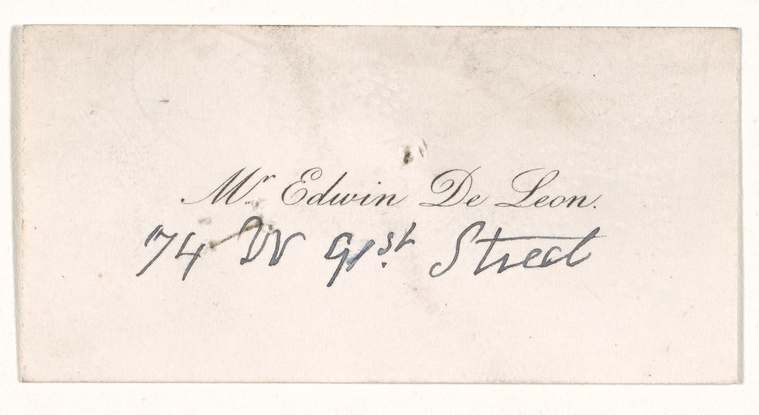 Mr. Edwin De Leon.
74 W 91st Street